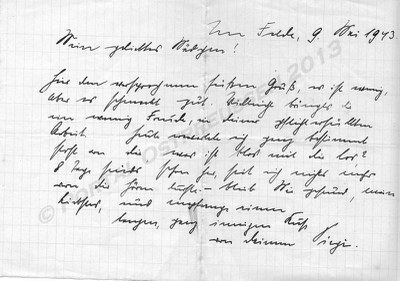 Im Felde, 9. Mai 1943.
Mein geliebtes Mädchen!
Hier den versprochenen süßen Gruß, er ist wenig,
aber er schmeckt gut. Vielleicht bringt er
ein wenig Freude, in deine pflichterfüllten
Arbeit. Heute wartete ich ganz bestimmt
Post von dir was ist blos mit dir los?
8 Tage schon her, seit ich nichts mehr
von dir hören - bleib gesund, mein
Liebstes, und empfange einen
langen, ganz innigen Kuß
von deinem
2013